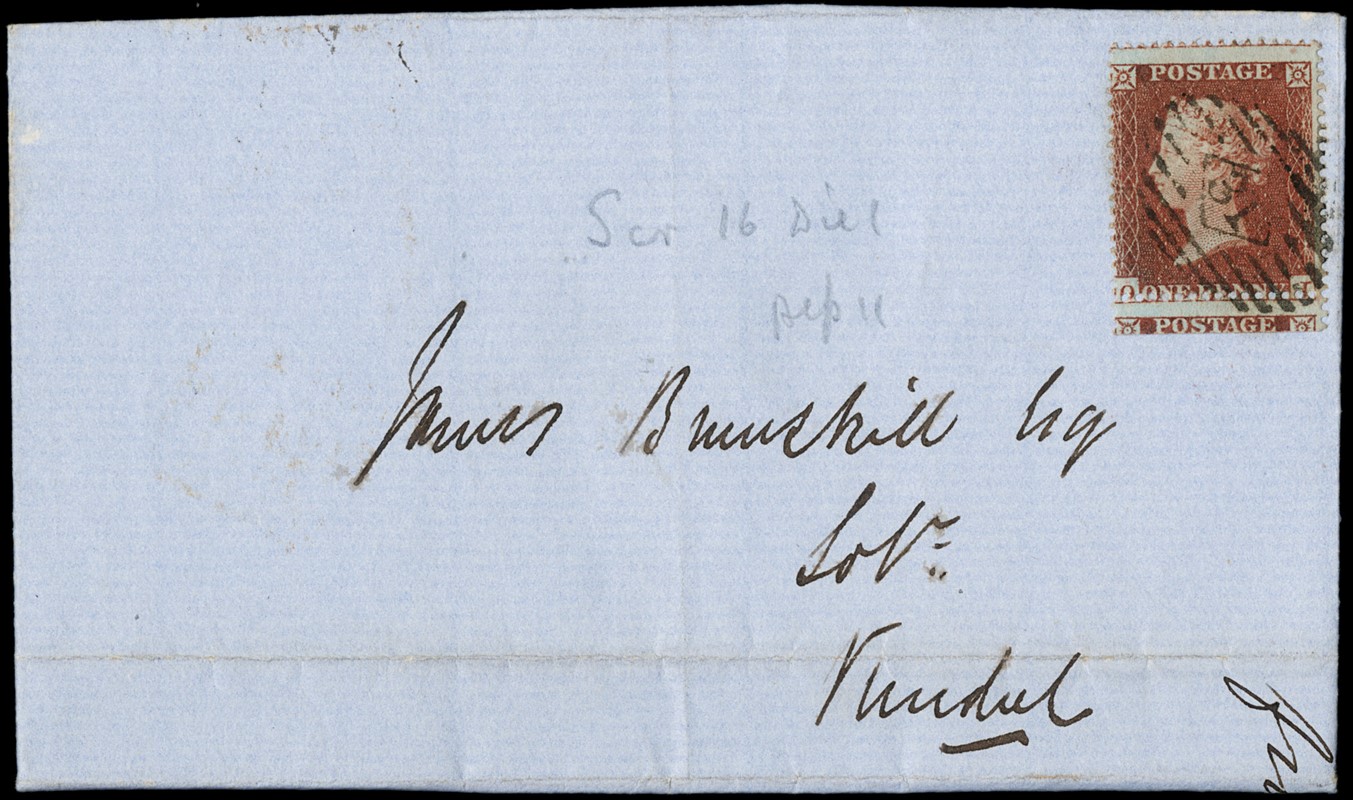 POSTAGE
ONE PENNY
POSTAGE
Scr 16 Die I
James Brunskill Esq
Solr
Kendal